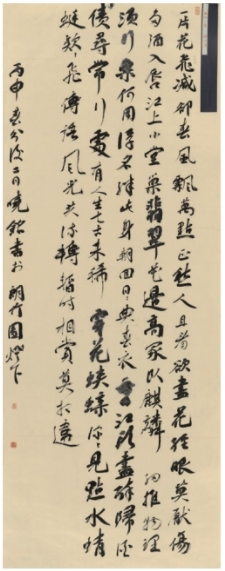 一片花飛減却春風飄萬點正愁人且看欲盡花經眼莫厭傷
多酒入唇江上小堂巢翡翠花邊高冢臥麒麟細推物理
須行樂何用浮名絆此身朝回日日典春衣每日江頭盡醉歸酒
債尋常行處有人生七十古来稀穿花蛺蝶深深見點水蜻
蜓款款飛傳語風光共流轉暫時相賞莫相違
丙申春分後二日曉書於明竹園燈下